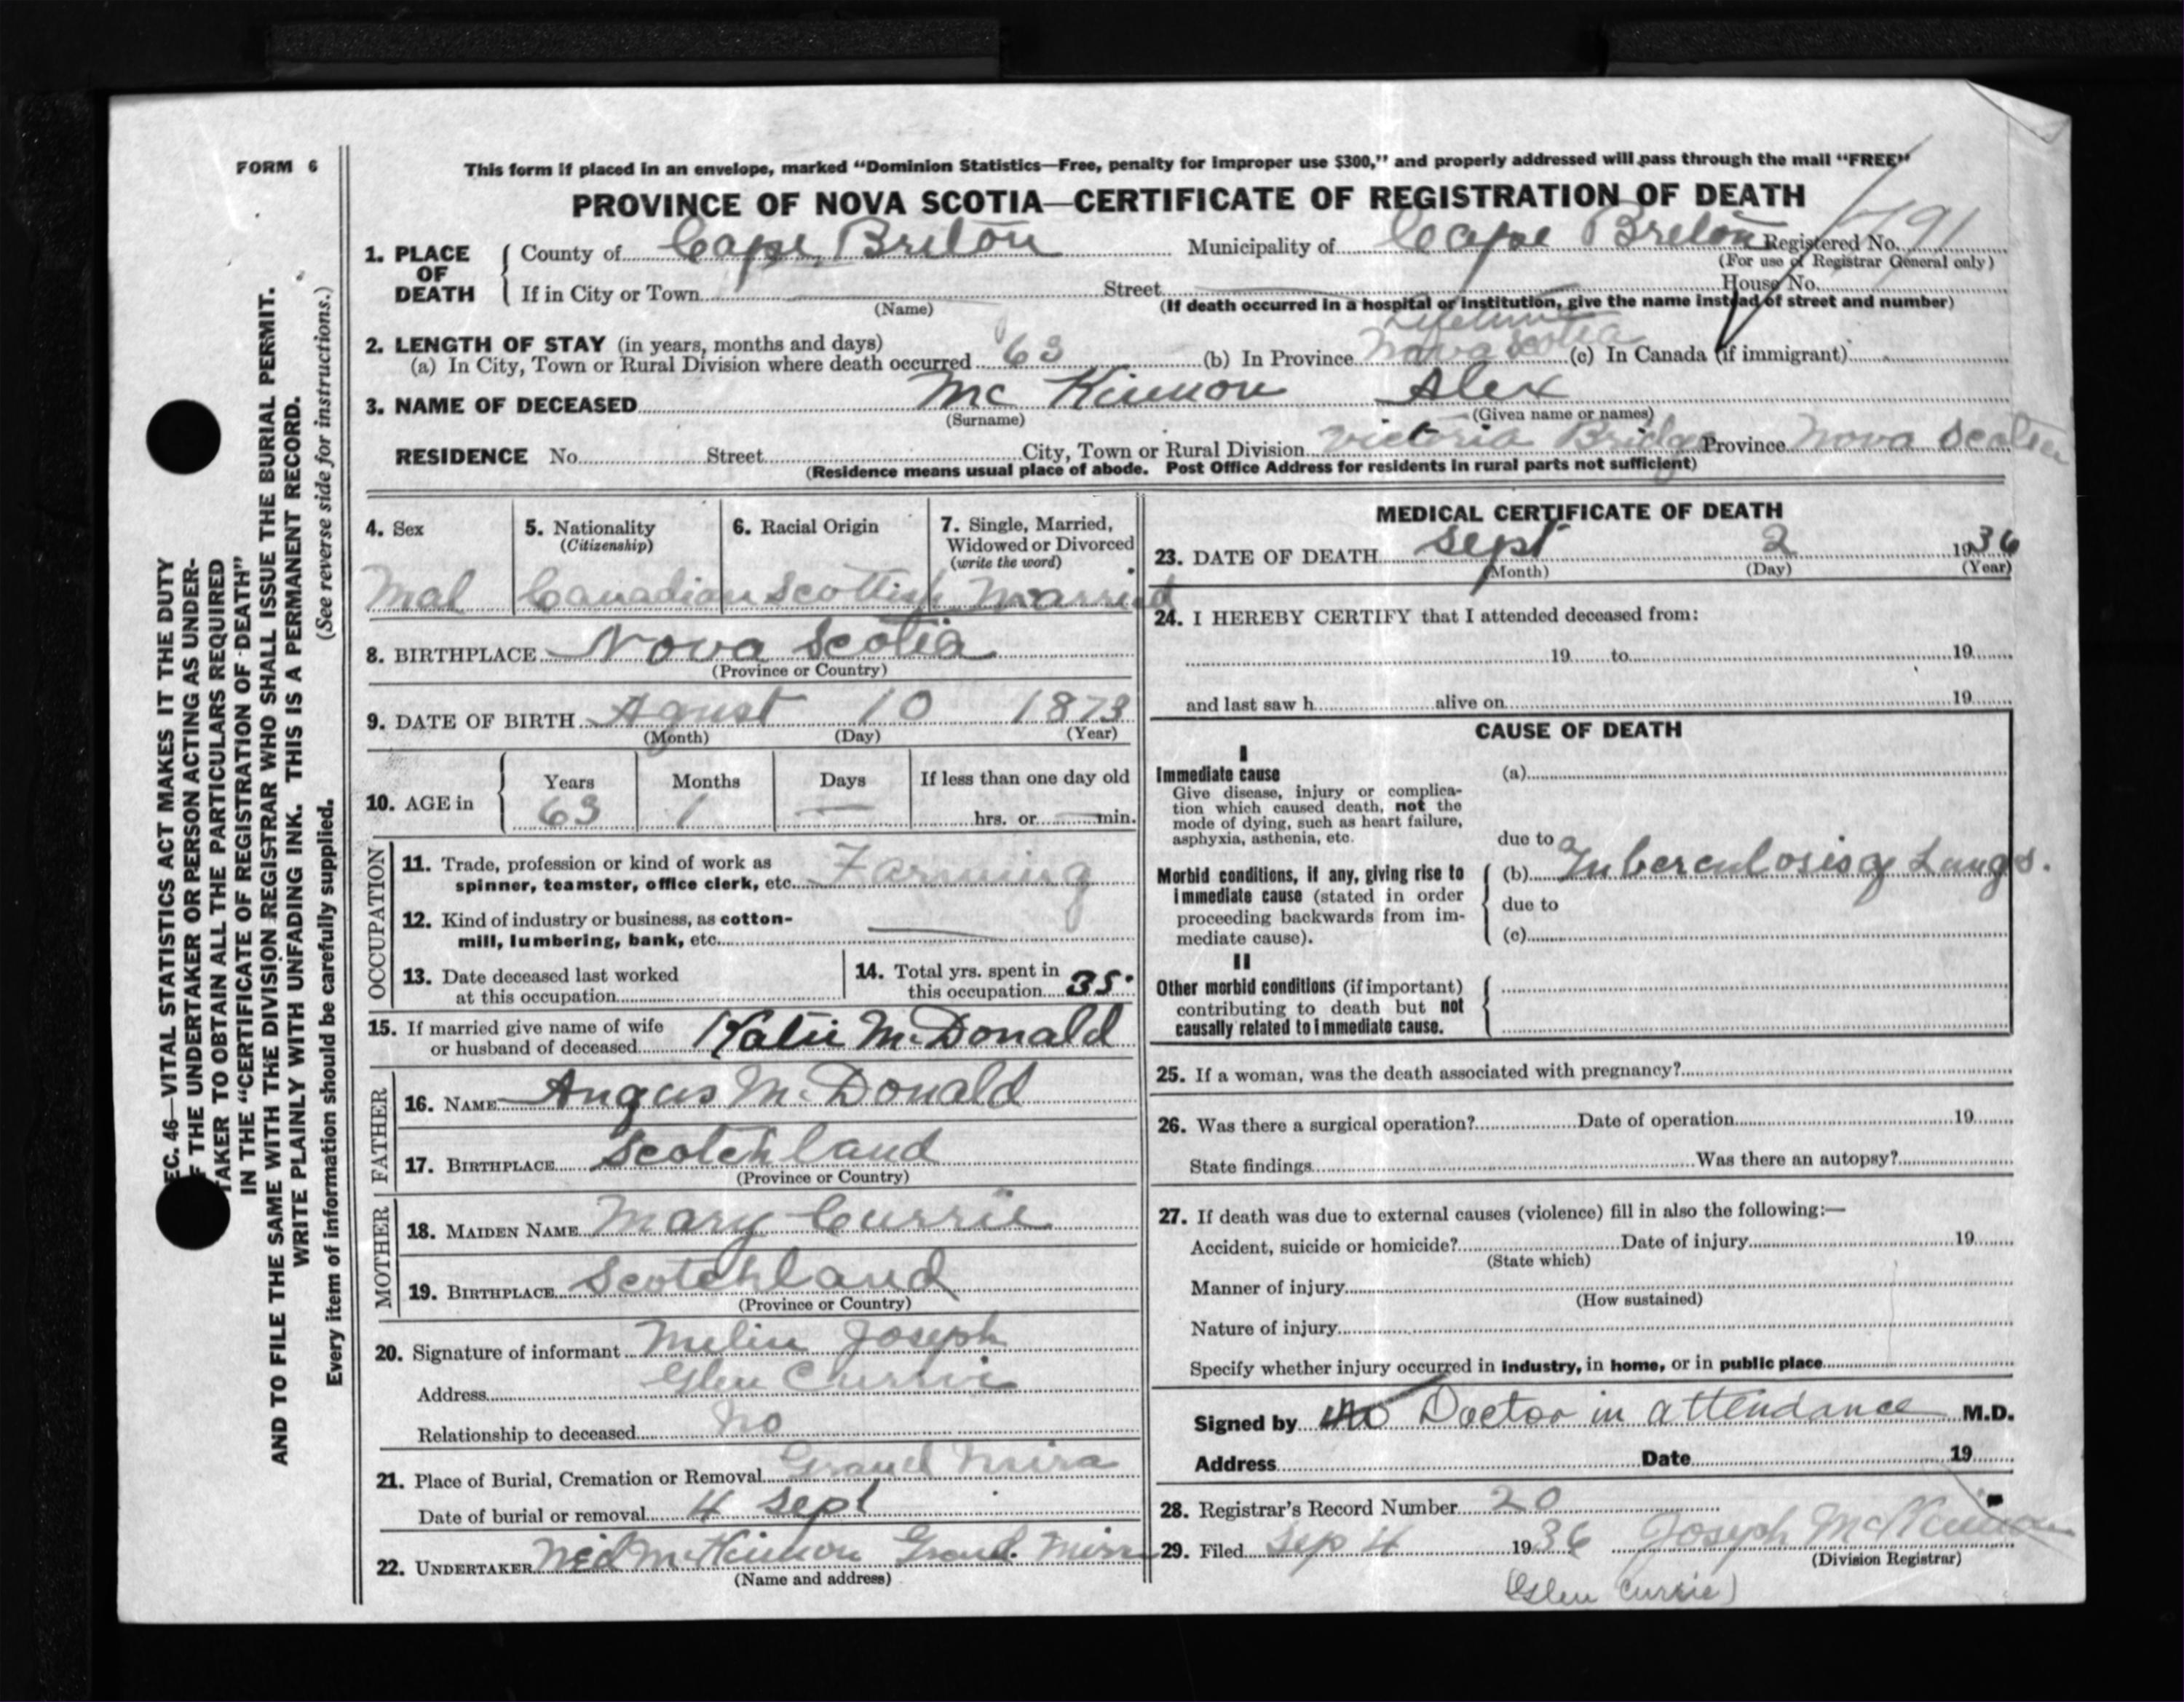 FORM 6
This form if placed in an envelope, marked "Dominion Statistics—Free, penalty for improper use $300," and properly addressed will pass through the mail "FREE"
PROVINCE OF NOVA SCOTIA—CERTIFICATE OF REGISTRATION OF DEATH
1. PLACE OF DEATH { County of Cape Breton Municipality of Cape Breton Registered No. 791
(For use of Registrar General only)
If in City or Town — Street — House No.
(Name) (If death occurred in a hospital or institution, give the name instead of street and number)
2. LENGTH OF STAY (in years, months and days) Lifetime
(a) In City, Town or Rural Division where death occurred 63 (b) In Province Nova Scotia (c) In Canada (if immigrant)
3. NAME OF DECEASED Mc Kinnon Alex
(Surname) (Given name or names)
RESIDENCE No. Street City, Town or Rural Division Victoria Bridge Province Nova Scotia
(Residence means usual place of abode. Post Office Address for residents in rural parts not sufficient)
4. Sex
Mal
5. Nationality
(Citizenship)
Canadian
6. Racial Origin
Scottish
7. Single, Married,
Widowed or Divorced
(write the word)
Married
8. BIRTHPLACE Nova Scotia
(Province or Country)
9. DATE OF BIRTH Agust 10 1873
(Month) (Day) (Year)
10. AGE in { Years Months Days If less than one day old
63 1 — hrs. or — min.
OCCUPATION
11. Trade, profession or kind of work as
spinner, teamster, office clerk, etc. Farming
12. Kind of industry or business, as cotton-
mill, lumbering, bank, etc. —
13. Date deceased last worked
at this occupation
14. Total yrs. spent in
this occupation 35.
15. If married give name of wife
or husband of deceased Katie McDonald
FATHER
16. NAME Angus McDonald
17. BIRTHPLACE Scotchland
(Province or Country)
MOTHER
18. MAIDEN NAME Mary Currie
19. BIRTHPLACE Scotchland
(Province or Country)
20. Signature of informant Joseph
Address Glen Currie
Relationship to deceased No
21. Place of Burial, Cremation or Removal Grand Mira
Date of burial or removal 4 Sept
22. UNDERTAKER Ned McKinnon Grand Mira
(Name and address)
MEDICAL CERTIFICATE OF DEATH
23. DATE OF DEATH Sept 2 1936
(Month) (Day) (Year)
24. I HEREBY CERTIFY that I attended deceased from:
19 to 19
and last saw h alive on 19
CAUSE OF DEATH
I
Immediate cause (a)
Give disease, injury or complica-
tion which caused death, not the
mode of dying, such as heart failure,
asphyxia, asthenia, etc. due to
Morbid conditions, if any, giving rise to
immediate cause (stated in order
proceeding backwards from im-
mediate cause).
(b) Tuberculosis of Lungs.
due to
(c)
II
Other morbid conditions (if important)
contributing to death but not
causally related to immediate cause.
25. If a woman, was the death associated with pregnancy?
26. Was there a surgical operation? Date of operation 19
State findings Was there an autopsy?
27. If death was due to external causes (violence) fill in also the following:—
Accident, suicide or homicide? Date of injury 19
(State which)
Manner of injury
(How sustained)
Nature of injury
Specify whether injury occurred in industry, in home, or in public place
Signed by no Doctor in attendance M.D.
Address Date 19
28. Registrar's Record Number 20
29. Filed Sep 4 1936 Joseph McKinnon
(Division Registrar)
(Glen Currie)
EC. 46—VITAL STATISTICS ACT MAKES IT THE DUTY
F THE UNDERTAKER OR PERSON ACTING AS UNDER-
TAKER TO OBTAIN ALL THE PARTICULARS REQUIRED
IN THE "CERTIFICATE OF REGISTRATION OF DEATH"
AND TO FILE THE SAME WITH THE DIVISION REGISTRAR WHO SHALL ISSUE THE BURIAL PERMIT.
WRITE PLAINLY WITH UNFADING INK. THIS IS A PERMANENT RECORD.
Every item of information should be carefully supplied. (See reverse side for instructions.)